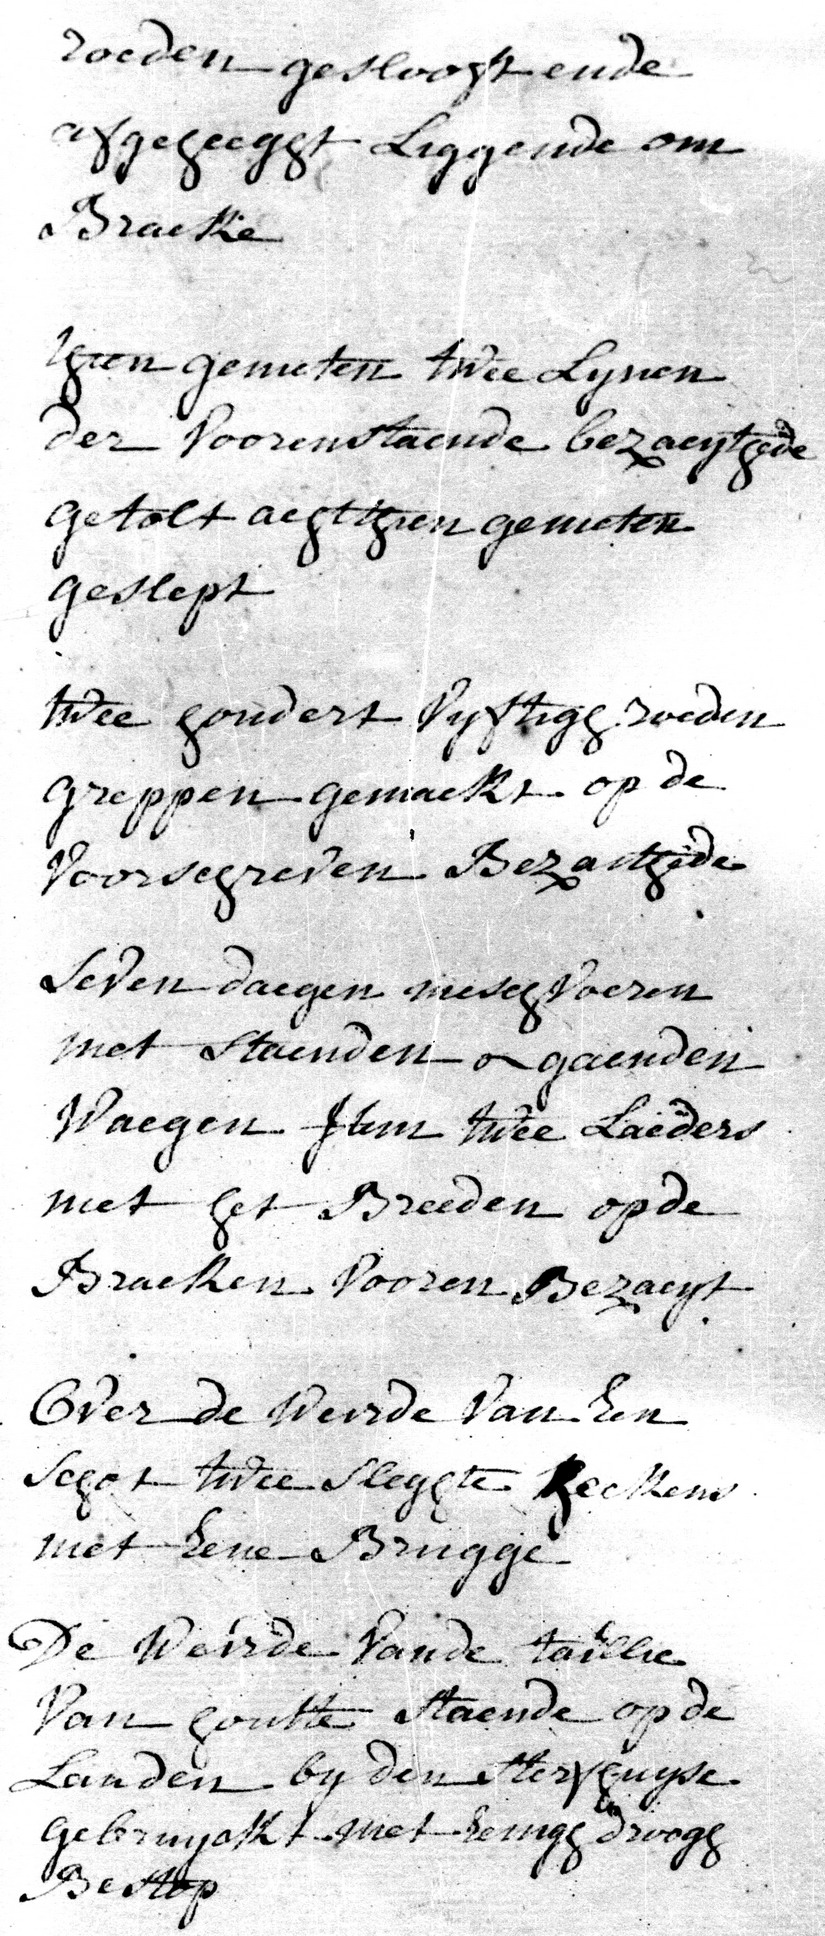 roeden geslooght ende
afgegeeggt Liggende om
Bracke
thien gemeten twee Lynen
der Voorenstaende bezaeythede
getolt aeghthien gemeten
geslept
twee hondert Vyftigh roeden
greppen gemaekt op de
Voorschreven Bezaethede
Seven daegen meschvoeren
met staenden & gaenden
Waegen Item twee Laeders
met het Breeden op de
Bracken Vooren Bezaeyt
Over de Weirde Van Een
schot twee sleghte heckens
met Eene Brugge
De Weirde Vande taillie
Van houtte staende op de
Landen by den sterfhuyse
gebruyckt met Eenigh droogh
Bestop